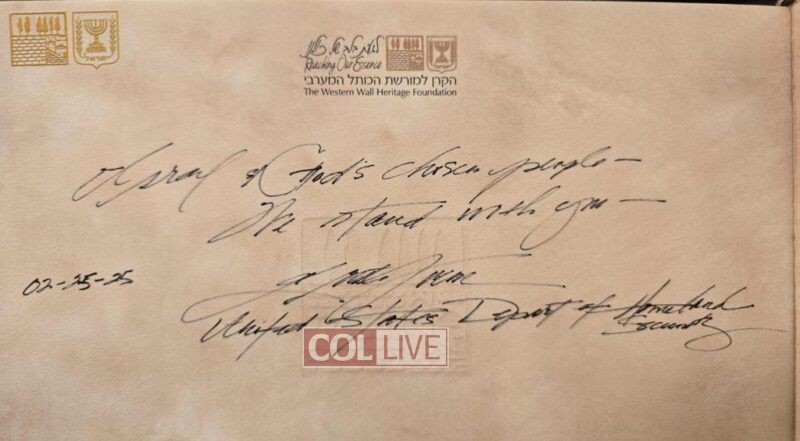 ישראל
לגעת בלב של כולנו
Reaching Our Essence
הקרן למורשת הכותל המערבי
The Western Wall Heritage Foundation
Israel & God's chosen people —
We stand with you —
02-25-25
Noem
United States Depart of Homeland
Security
COL LIVE